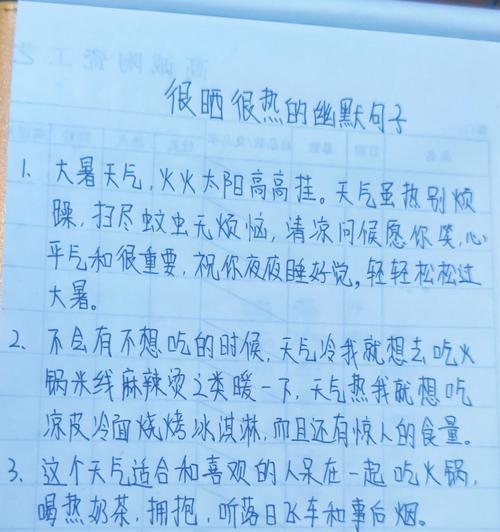 很晒很热的幽默句子
1、大暑天气，火火太阳高高挂。天气虽热别烦
躁，扫尽蚊虫无烦恼，清凉问候愿你笑，心
平气和很重要，祝你夜夜睡好觉，轻轻松松过
大暑。
2、不会有不想吃的时候，天气冷我就想去吃火
锅米线麻辣烫之类暖一下，天气热我就想吃
凉皮冷面烧烤冰淇淋，而且还有惊人的食量。
3、这个天气适合和喜观的人呆在一起吃火锅，
喝热奶茶，拥抱，听落日飞车和事后烟。